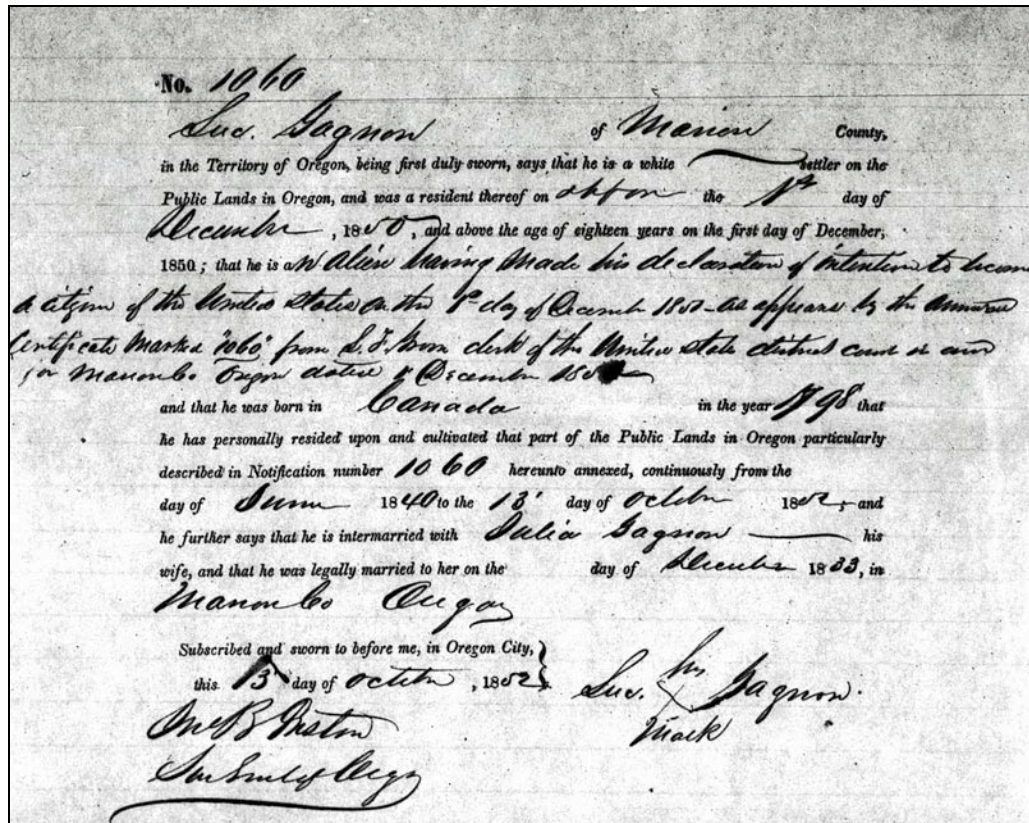 No. 1060
Luc. Gagnon of Marion County,
in the Territory of Oregon, being first duly sworn, says that he is a white settler on the
Public Lands in Oregon, and was a resident thereof on the 1st day of
December, 1850, and above the age of eighteen years on the first day of December,
1850; that he is an Alien having Made his declaration of intention to become
a citizen of the United States on the day of December as appears by the
Certificate Marked "1060" from clerk of the United State district court in and
for Marion Co Oregon dated December
and that he was born in Canada in the year 1798 that
he has personally resided upon and cultivated that part of the Public Lands in Oregon particularly
described in Notification number 1060 hereunto annexed, continuously from the
day of 1840 to the 13 day of October 1852, and
he further says that he is intermarried with Julia Gagnon his
wife, and that he was legally married to her on the day of December 1833, in
Marion Co Oregon
Subscribed and sworn to before me, in Oregon City,
this 13 day of October, 1852
Luc. his Gagnon.
mark
Preston
Sur Genl of Oregon